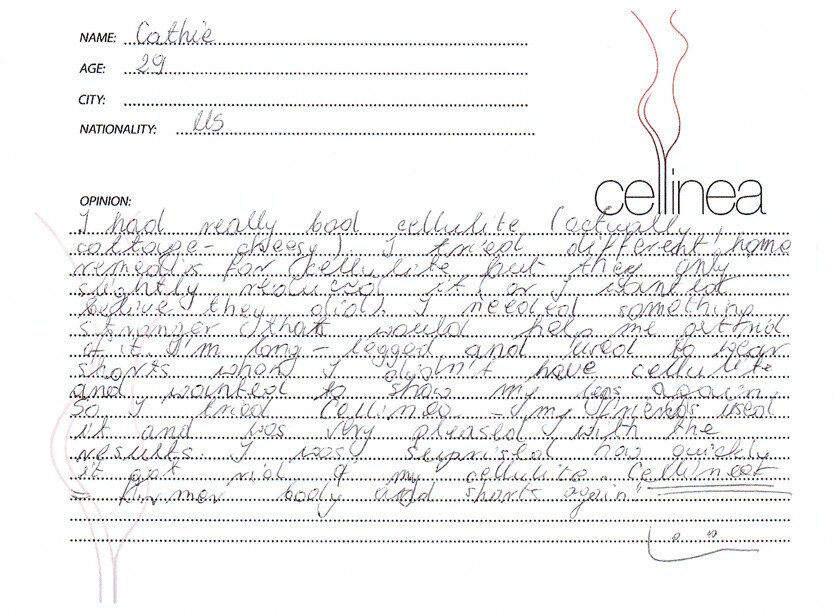 NAME: Cathie
AGE: 29
CITY:
NATIONALITY: US
cellinea
OPINION:
I had really bad cellulite (actually,
cottage-cheesy). I tried different home
remedis for cellulite but they only
slightly reduced it (or I wanted
belive they did). I needed something
stronger that would help me get rid
of it. I'm long-legged and used to wear
shorts when I didn't have cellulite
and wanted to show my legs again.
So I tried Cellinea - my friends used
it and was very pleased with the
results. I was surprised how quickly
it got rid of my cellulite.
= firmer body and shorts again"